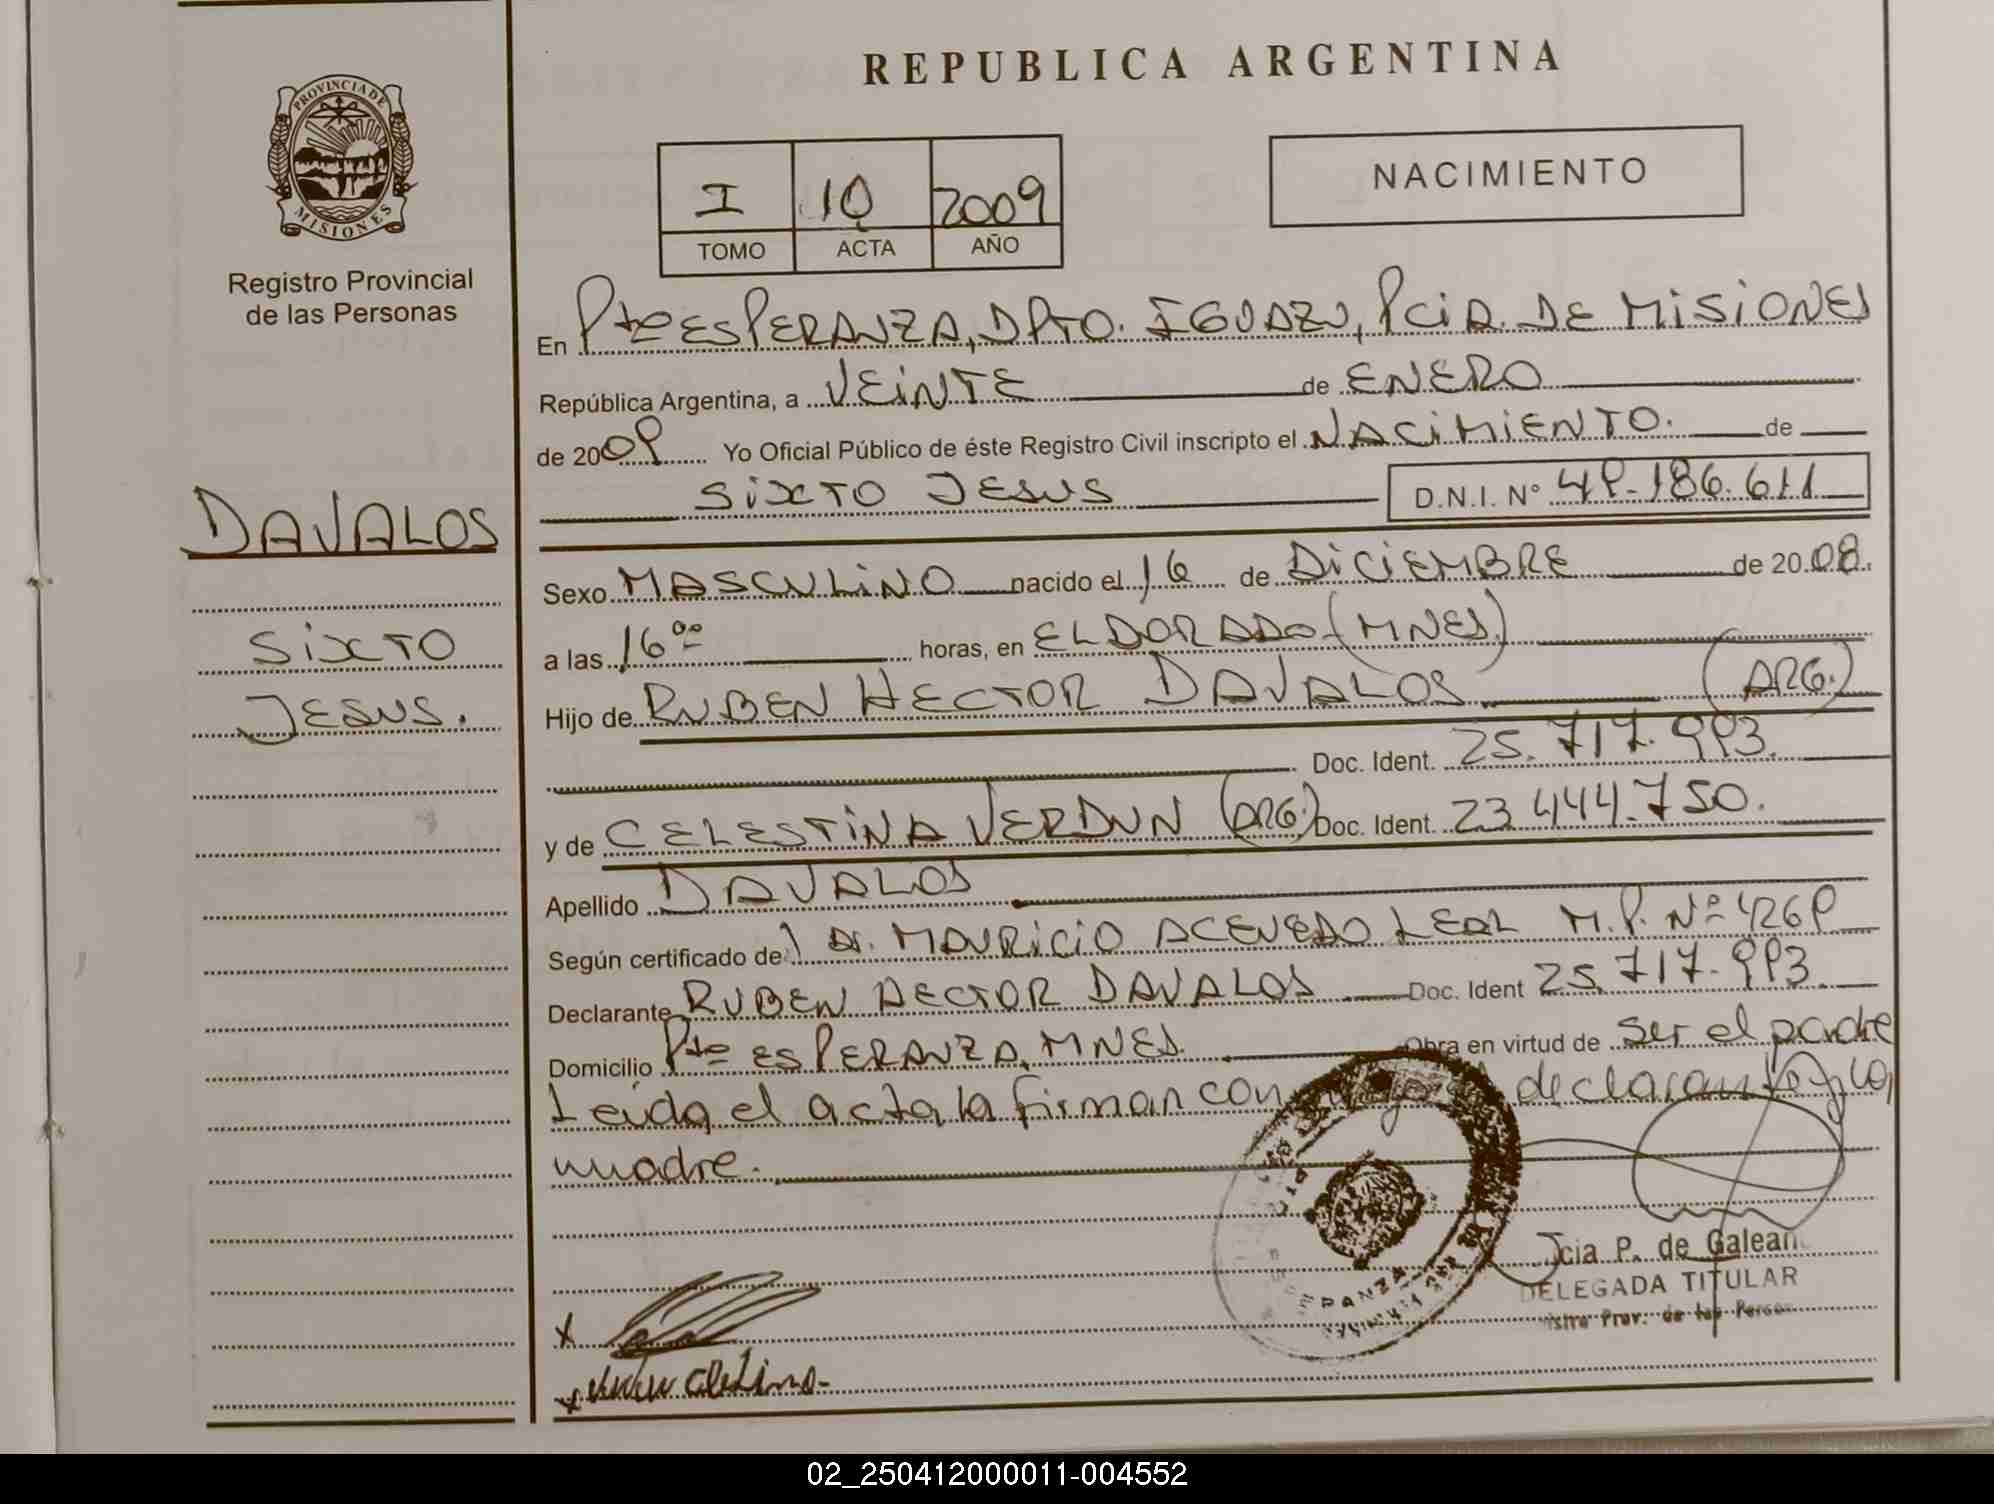 REPUBLICA ARGENTINA
PROVINCIA DE
MISIONES
Registro Provincial
de las Personas
I 10 2009
TOMO ACTA AÑO
NACIMIENTO
En Pto ESPERANZA, DPTO. IGUAZU, PciA. DE MISIONES
República Argentina, a VEINTE de ENERO
de 2009 Yo Oficial Público de éste Registro Civil inscripto el NACIMIENTO. de
SIXTO JESUS D.N.I. N° 49.186.611
DAVALOS
SIXTO
JESUS.
Sexo MASCULINO nacido el 16 de DICIEMBRE de 2008.
a las 16 oo horas, en ELDORADO (MNES)
Hijo de RUBEN HECTOR DAVALOS (ARG.)
Doc. Ident. 25.717.993.
y de CELESTINA VERDUN (ARG.) Doc. Ident. 23.444.750.
Apellido DAVALOS
Según certificado de Dr. MAURICIO ACEVEDO LEAL M.P. Nº 4269
Declarante RUBEN HECTOR DAVALOS Doc. Ident 25.717.993
Domicilio Pto ESPERANZA, MNES. Obra en virtud de ser el padre
Leida el acta la firman con declarante y la
madre.
P. de Galean
DELEGADA TITULAR
Prov. de las Person
02_250412000011-004552